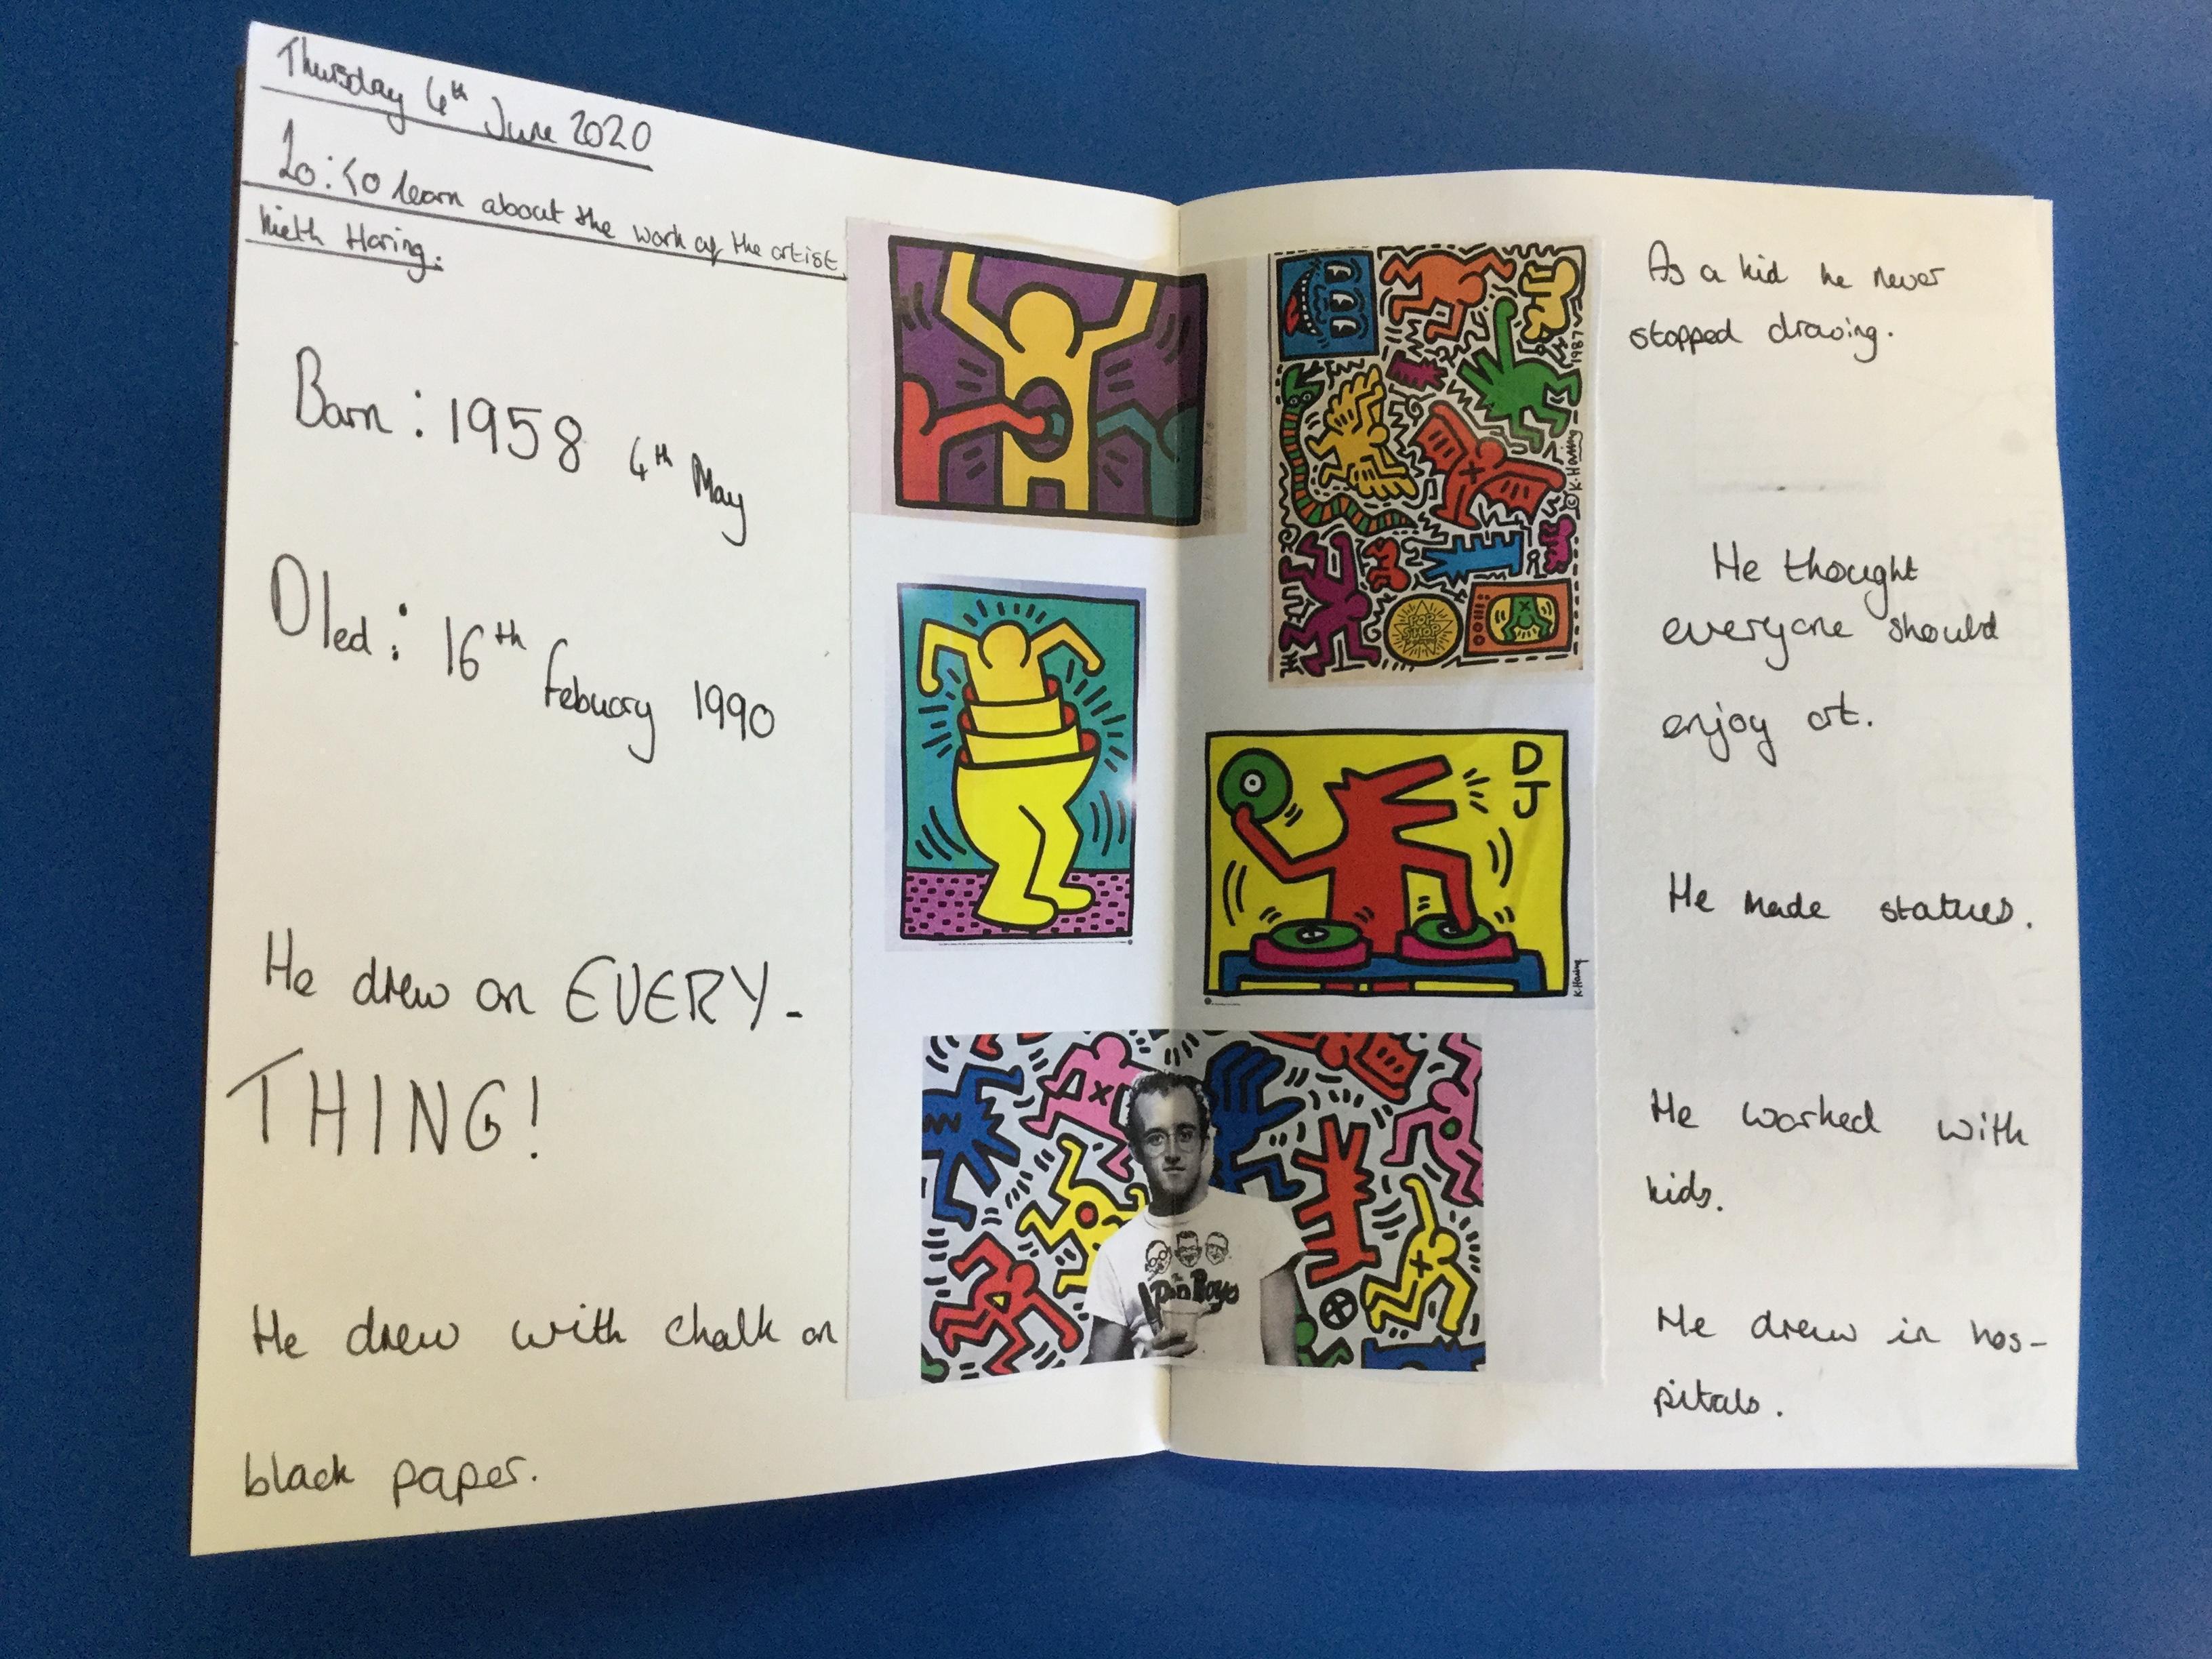 Thursday 4th June 2020
Lo: to learn about the work of the artist
Kieth Haring.
Born: 1958 4th May
Died: 16th Febuary 1990
He drew on EVERY-
THING!
He drew with chalk on
black paper.
1987
© K. Haring
POP
SHOP
D
J
K. Haring
As a kid he never
stopped drawing.
He thought
everyone should
enjoy art.
He made statues.
He worked with
kids.
He drew in hos-
pitals.